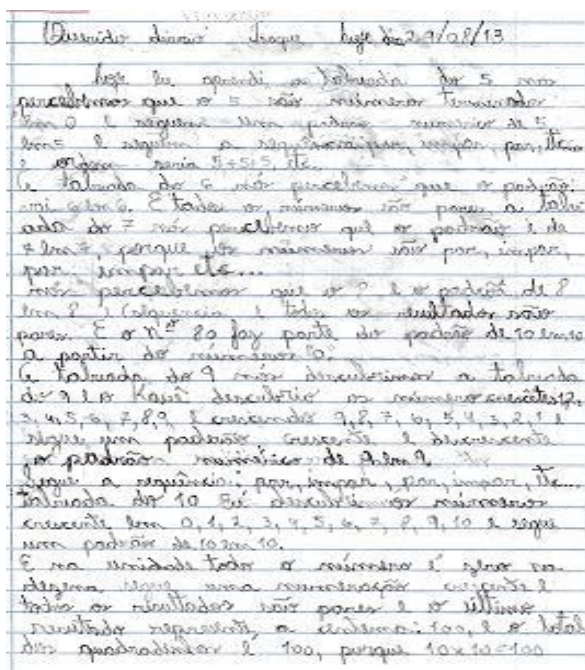 Querido diário hoje dia 29/08/13
hoje eu aprendi a tabuada do 5 nós
percebemos que o 5 são números terminados
em 0 e seguem um padrão numérico de 5
em 5 e seguem a impar, par, etc
e ordem seria 5+5+5, etc.
A tabuada do 6 nós percebemos que o padrão
vai 6 em 6. E todos os números são pares a tabu
ada do 7 nós percebemos que o padrão é de
7 em 7 porque os números são par, impar,
par, impar etc...
nós percebemos que o 8 é o padrão de 8
em 8 e sequencia e todos os resultados são
pares. E o nº 80 faz parte do padrão de 10 em 10
a partir do número 10.
A tabuada do 9 nós descubrimos a tabuada
do 9 e o Kauê descubrio os número crescentes 1,2,
3, 4, 5, 6, 7, 8, 9 e 9, 8, 7, 6, 5, 4, 3, 2, 1 e
segue um padrão crescente e decrescente
o padrão numérico de 9 em 9
segue a sequência: par, impar, par, impar, etc...
tabuada do 10 os números
crescente em 0, 1, 2, 3, 4, 5, 6, 7, 8, 9, 10 e segue
um padrão de 10 em 10.
E na unidade todo o número é zero na
dezena segue uma numeração crescente e
todos os resultados são pares e o último
resultado representa a centena: 100, e o total
dos quadradinhos é 100, porque 10x10=100